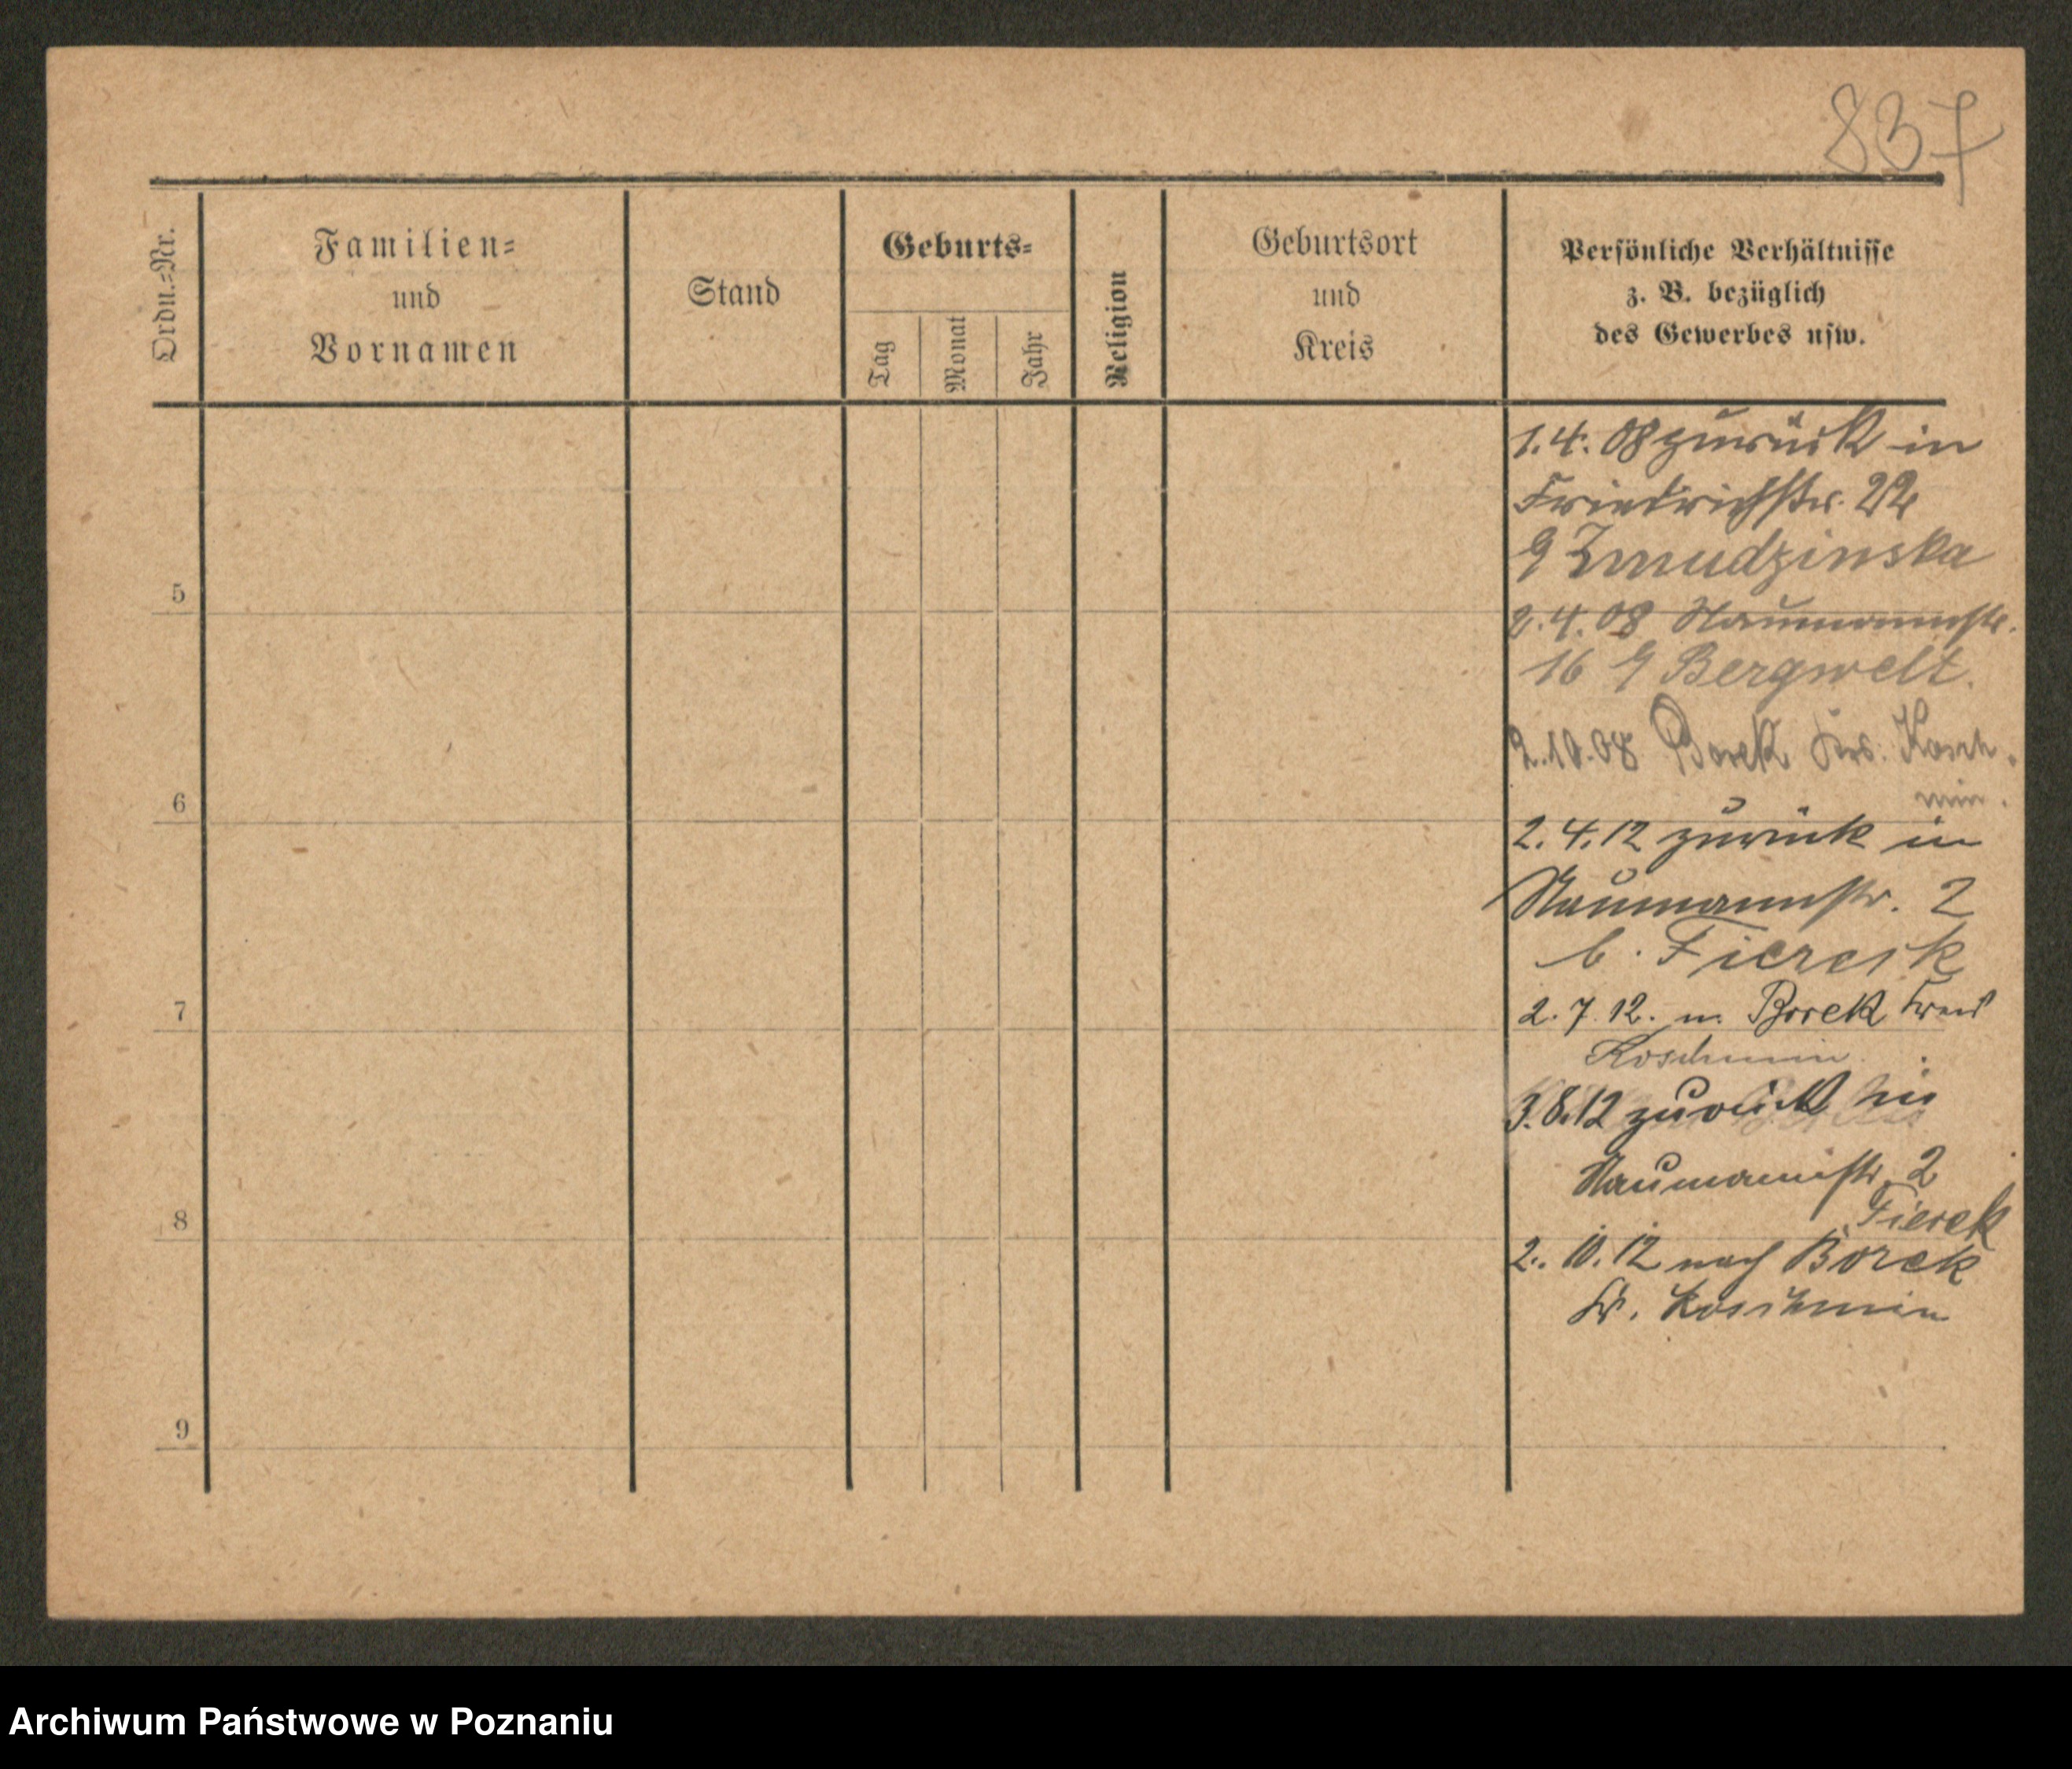 837
Ordn.=Nr.
Familien=
und
Vornamen
Stand
Geburts=
Tag
Monat
Jahr
Religion
Geburtsort
und
Kreis
Persönliche Verhältnisse
z. B. bezüglich
des Gewerbes usw.
1.4.08 zurück in
Friedrichstr. 22
Zmudzinska
5
2.4.08 Naumannstr.
16 Bergwelt.
2.10.08 Borek Krs. Kosch
min.
6
2.4.12 zurück in
Naumannstr. 2
b.
7
2.7.12. n. Borek Kreis
Koschmin.
3.8.12 zurück
Naumannstr. 2
Fierek
8
2. 10. 12 nach Borek
Kr. Koschmin
9
Archiwum Państwowe w Poznaniu